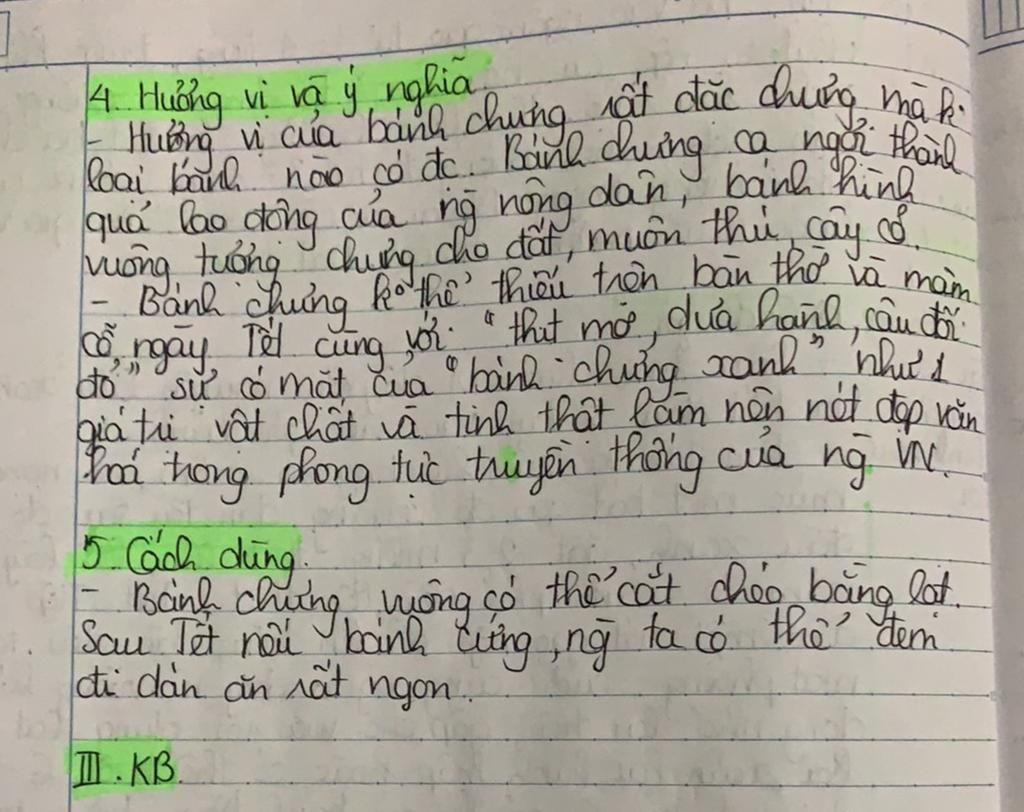 4. Hương vị và ý nghĩa
- Hương vị của bánh chưng rất đặc chưng mà k.
loại bánh nào có đc. Bánh chưng ca ngợi thành
quả lao động của ng nông dân, bánh hình
vuông tượng chưng cho đất, muôn thú, cây cỏ.
- Bánh chưng ko thể thiếu trên bàn thờ và mâm
cỗ, ngày Tết cùng với "thịt mỡ, dưa hành, câu đối
đỏ" sự có mặt của "bánh chưng xanh" như 1
giá trị vật chất và tinh thất làm nên nét đẹp văn
hoá trong phong tục truyền thống của ng VN.
5. Cách dùng.
- Bánh chưng vuông có thể cắt chéo bằng lạt.
Sau Tết nếu bánh cứng, ng ta có thể đem
đi dán ăn rất ngon.
III. KB.